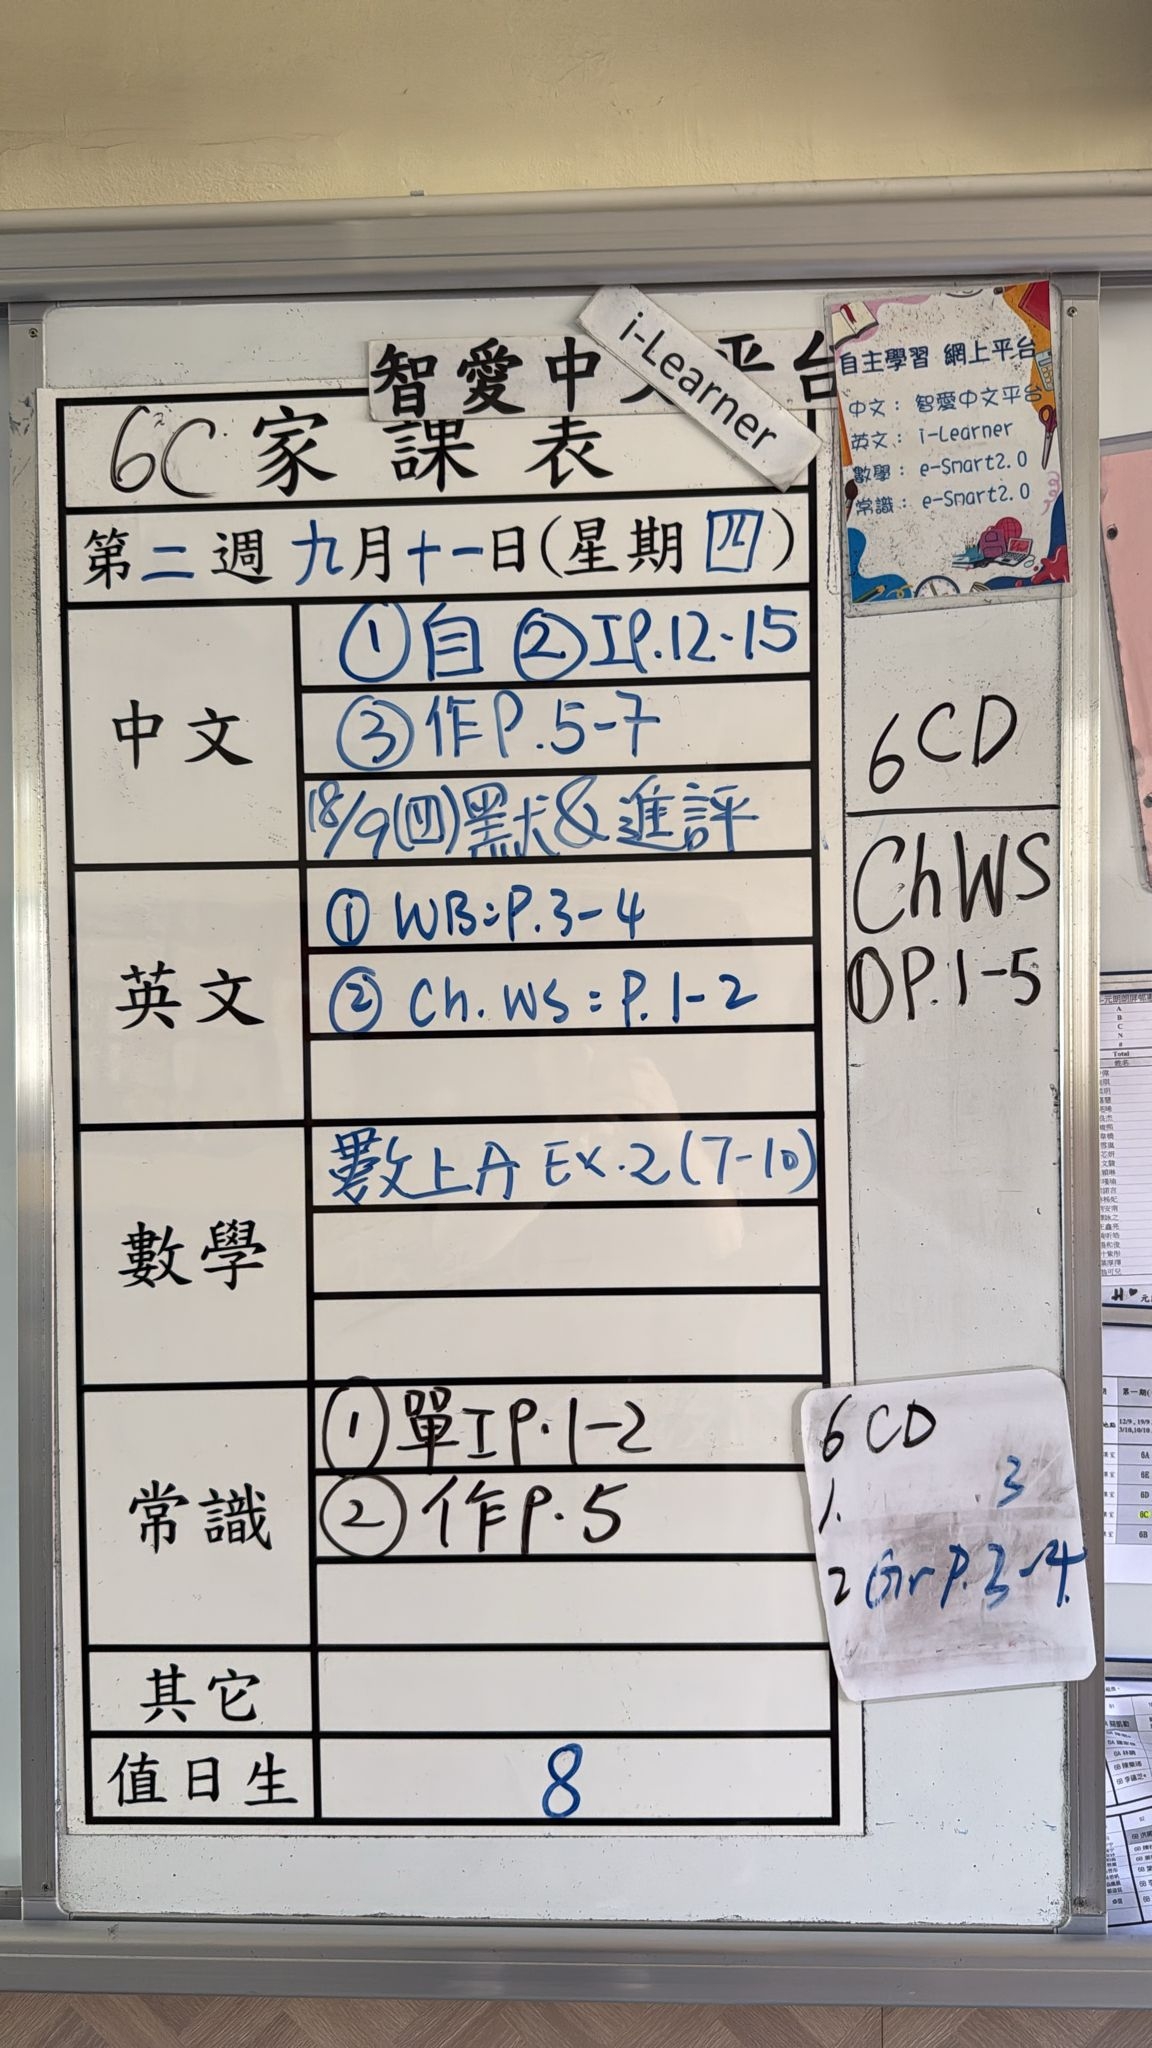 智愛中文平台
i-Learner
自主學習 網上平台
中文： 智愛中文平台
英文： i-Learner
數學： e-Smart2.0
常識： e-Smart2.0
6C 家課表
第二週 九月十一日(星期四)
中文
①自 ②工P.12-15
③作P.5-7
18/9(四)默&進評
英文
① WB:P.3-4
② Ch.WS:P.1-2
數學
數上A Ex.2(7-10)
常識
①單工P.1-2
②作P.5
其它
值日生
8
6CD
ChWS
①P.1-5
6CD
1. 3
2 Gr P.3-4